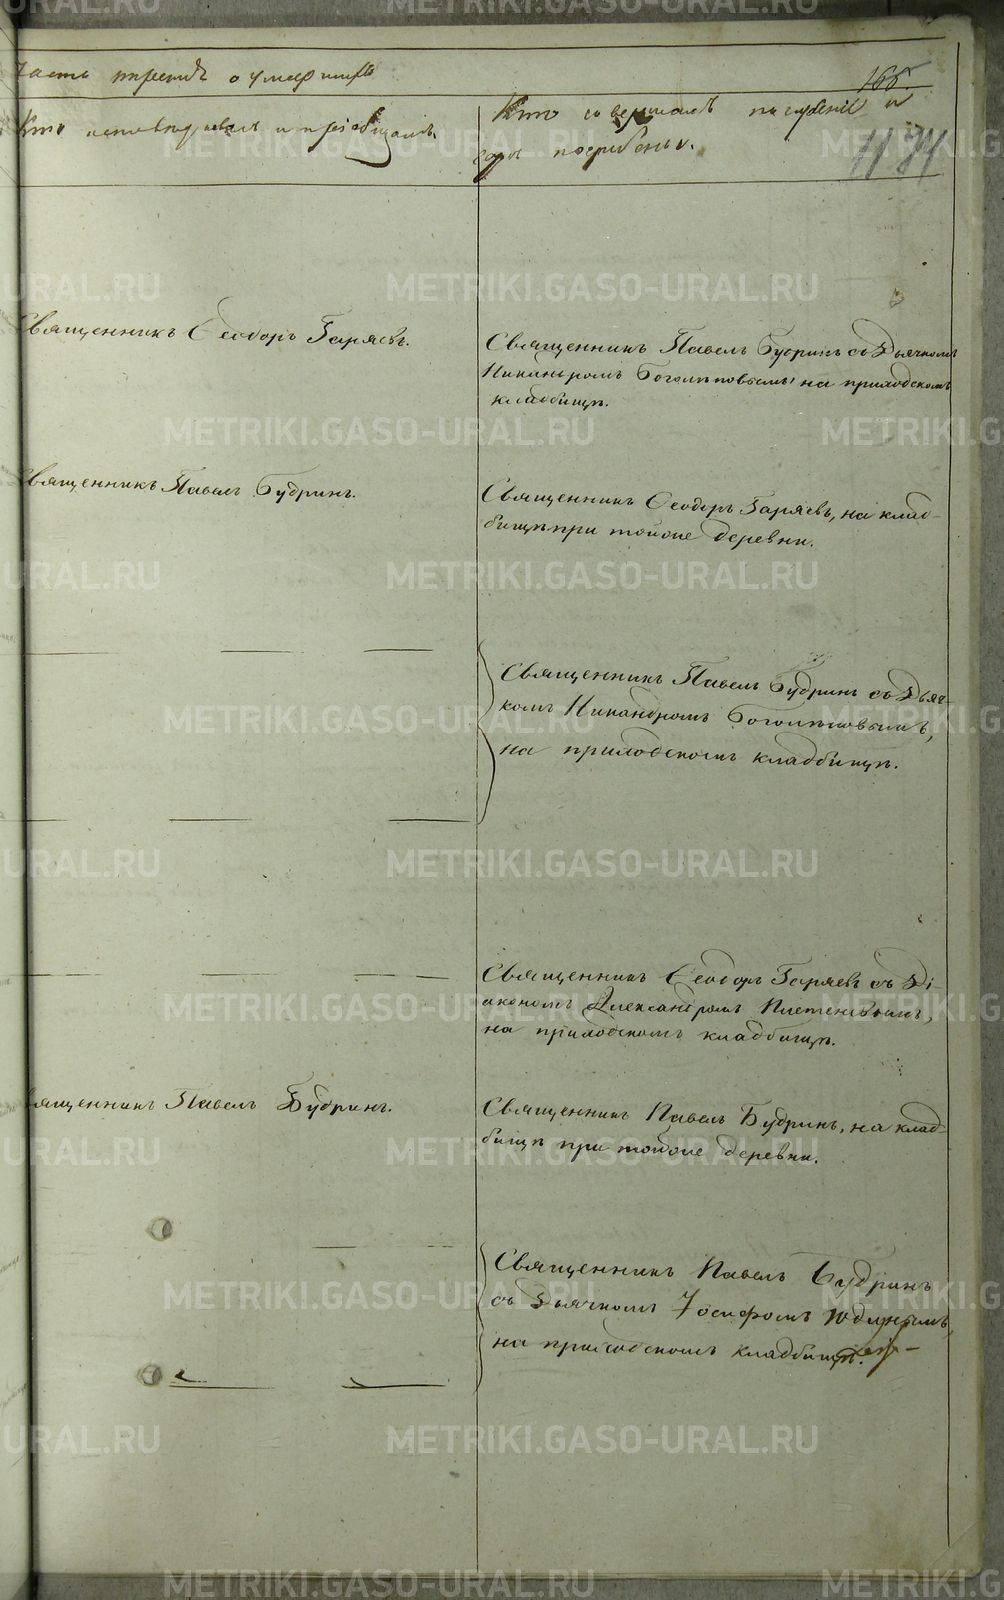 Часть третія о умершихъ
165.
1174
Кто исповѣдывалъ и пріобщалъ.
Кто совершалъ погребеніе и
гдѣ погребены.
Священникъ Ѳеодоръ Гаряевъ.
Священникъ Павелъ Будринъ съ Дьячкомъ
Никандромъ Боголѣповымъ, на приходскомъ
кладбищѣ.
Священникъ Павелъ Будринъ.
Священникъ Ѳеодоръ Гаряевъ, на клад-
бищѣ при той же деревни.
Священникъ Павелъ Будринъ съ Дьяч-
комъ Никандромъ Боголѣповымъ,
на приходскомъ кладбищѣ.
Священникъ Ѳеодоръ Гаряевъ съ Ді-
акономъ Александромъ
на приходскомъ кладбищѣ.
Священникъ Павелъ Будринъ.
Священникъ Павелъ Будринъ, на клад-
бищѣ при той же деревни.
Священникъ Павелъ Будринъ
съ Дьячкомъ Іосифомъ Юдинымъ,
на приходскомъ кладбищѣ.
METRIKI.GASO-URAL.RU